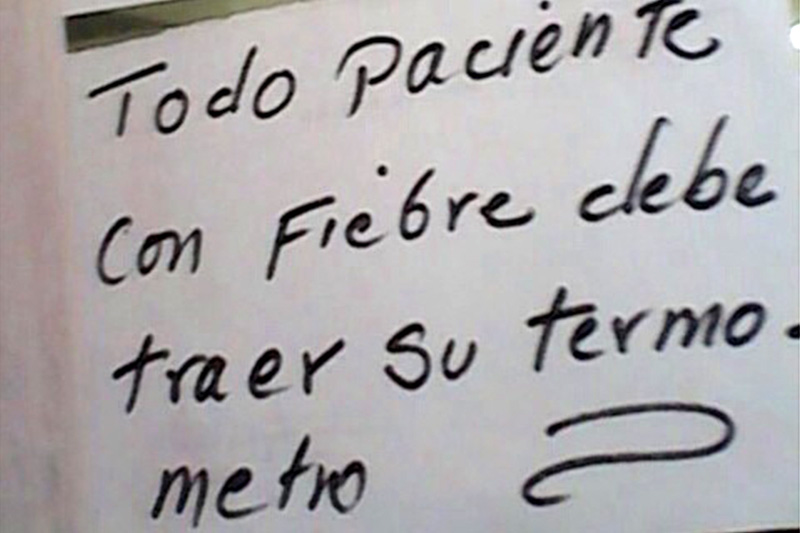 Todo paciente
con Fiebre debe
traer su termo-
metro